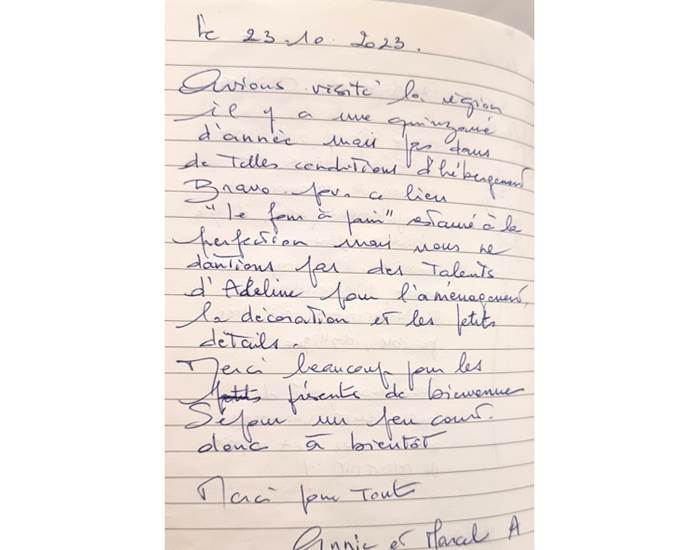 Le 23.10.2023.
Avions visité la région
il y a une quinzaine
d'année mais pas dans
de telles conditions d'hébergement
Bravo pour ce lieu
"le four à pain" restauré à la
perfection mais nous ne
doutions pas des talents
d'Adeline pour l'aménagement,
la décoration et les petits
détails.
Merci beaucoup pour les
petits présents de bienvenue
Séjour un peu court.
donc à bientôt
Merci pour tout
Annie et Marcel A